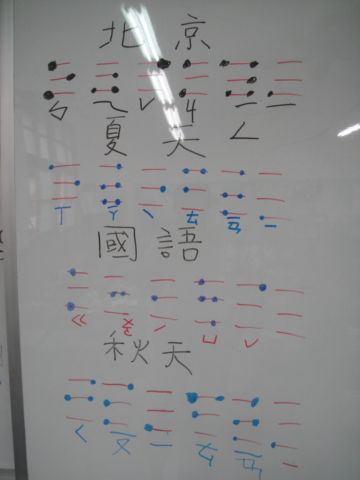 北京
ㄅ ㄟ ˇ ㄐ ㄧㄥ ˉ
夏天
ㄒ ㄧㄚ ˋ ㄊ ㄧㄢ ˉ
國語
ㄍ ㄨㄛ ˊ ㄩ ˇ
秋天
ㄑ ㄧㄡ ˉ ㄊ ㄧㄢ ˉ